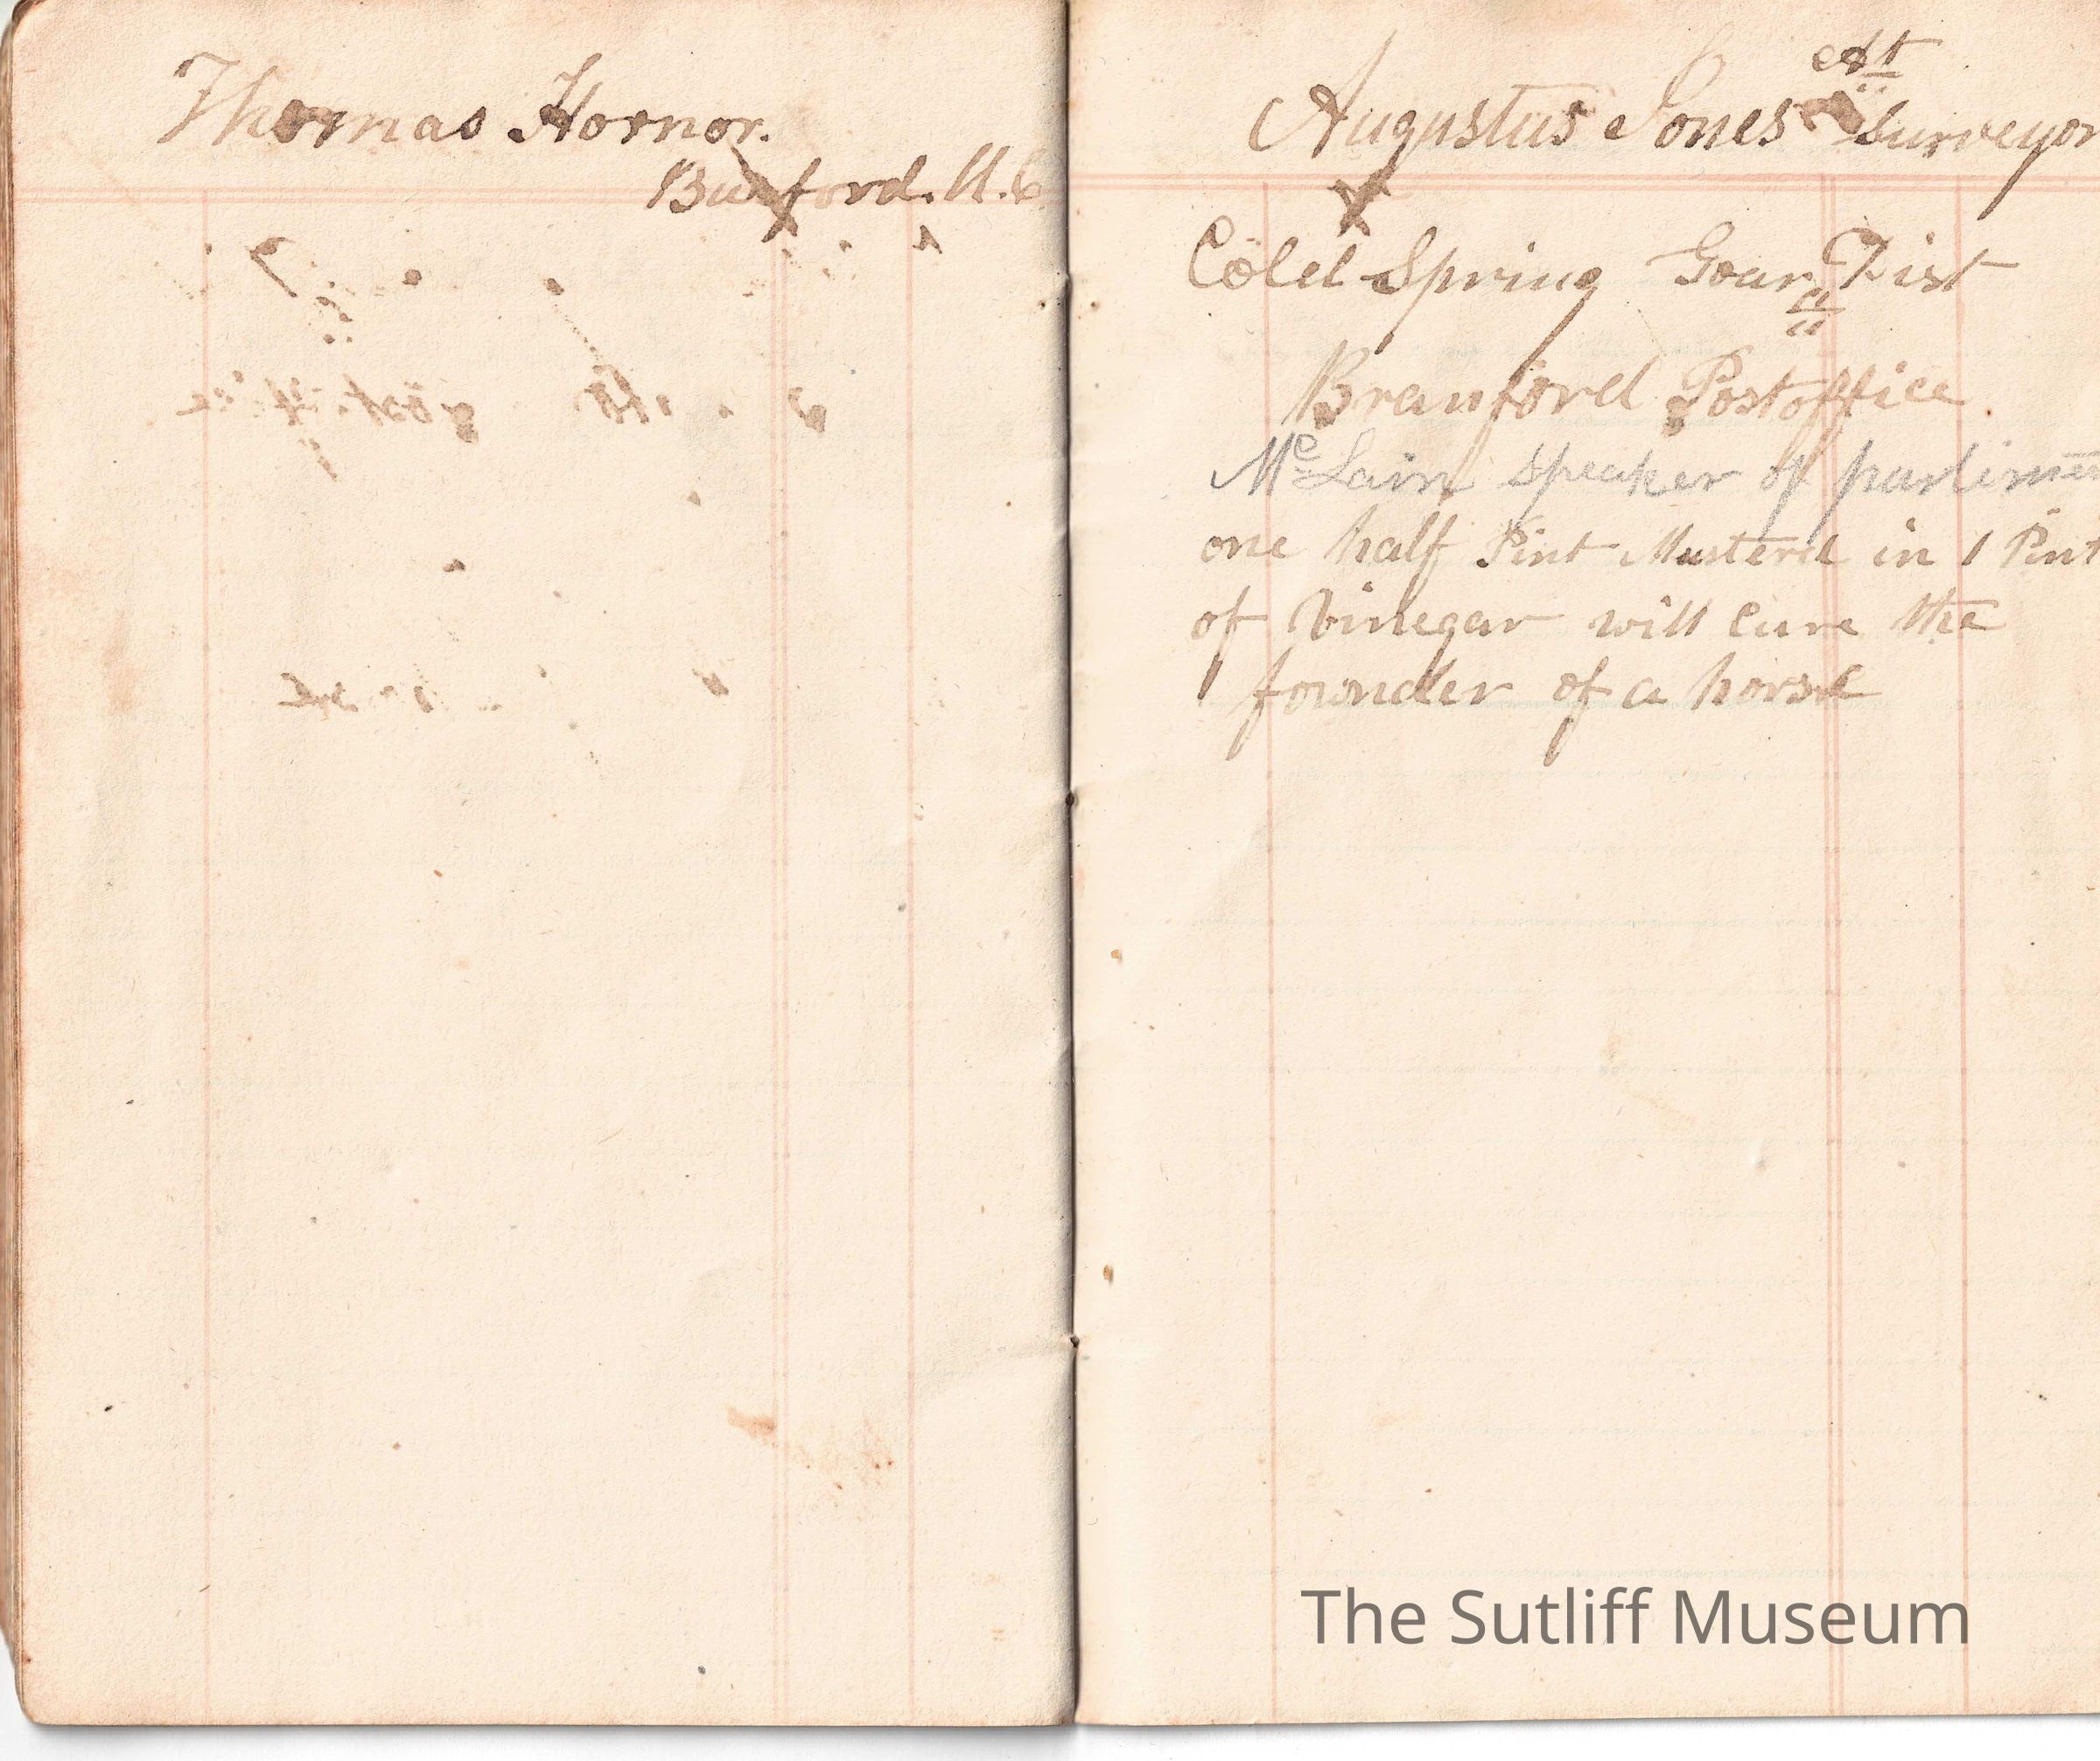 Thomas Hornor.
Burford. U. C
Augustus Jones At Surveyor
Cold Spring Gour Dist
Branford Postoffice
Mc Lain speaker of parlimen
one half Pint Musterd in 1 Pint
of Vinegar will cure the
founder of a horse
The Sutliff Museum